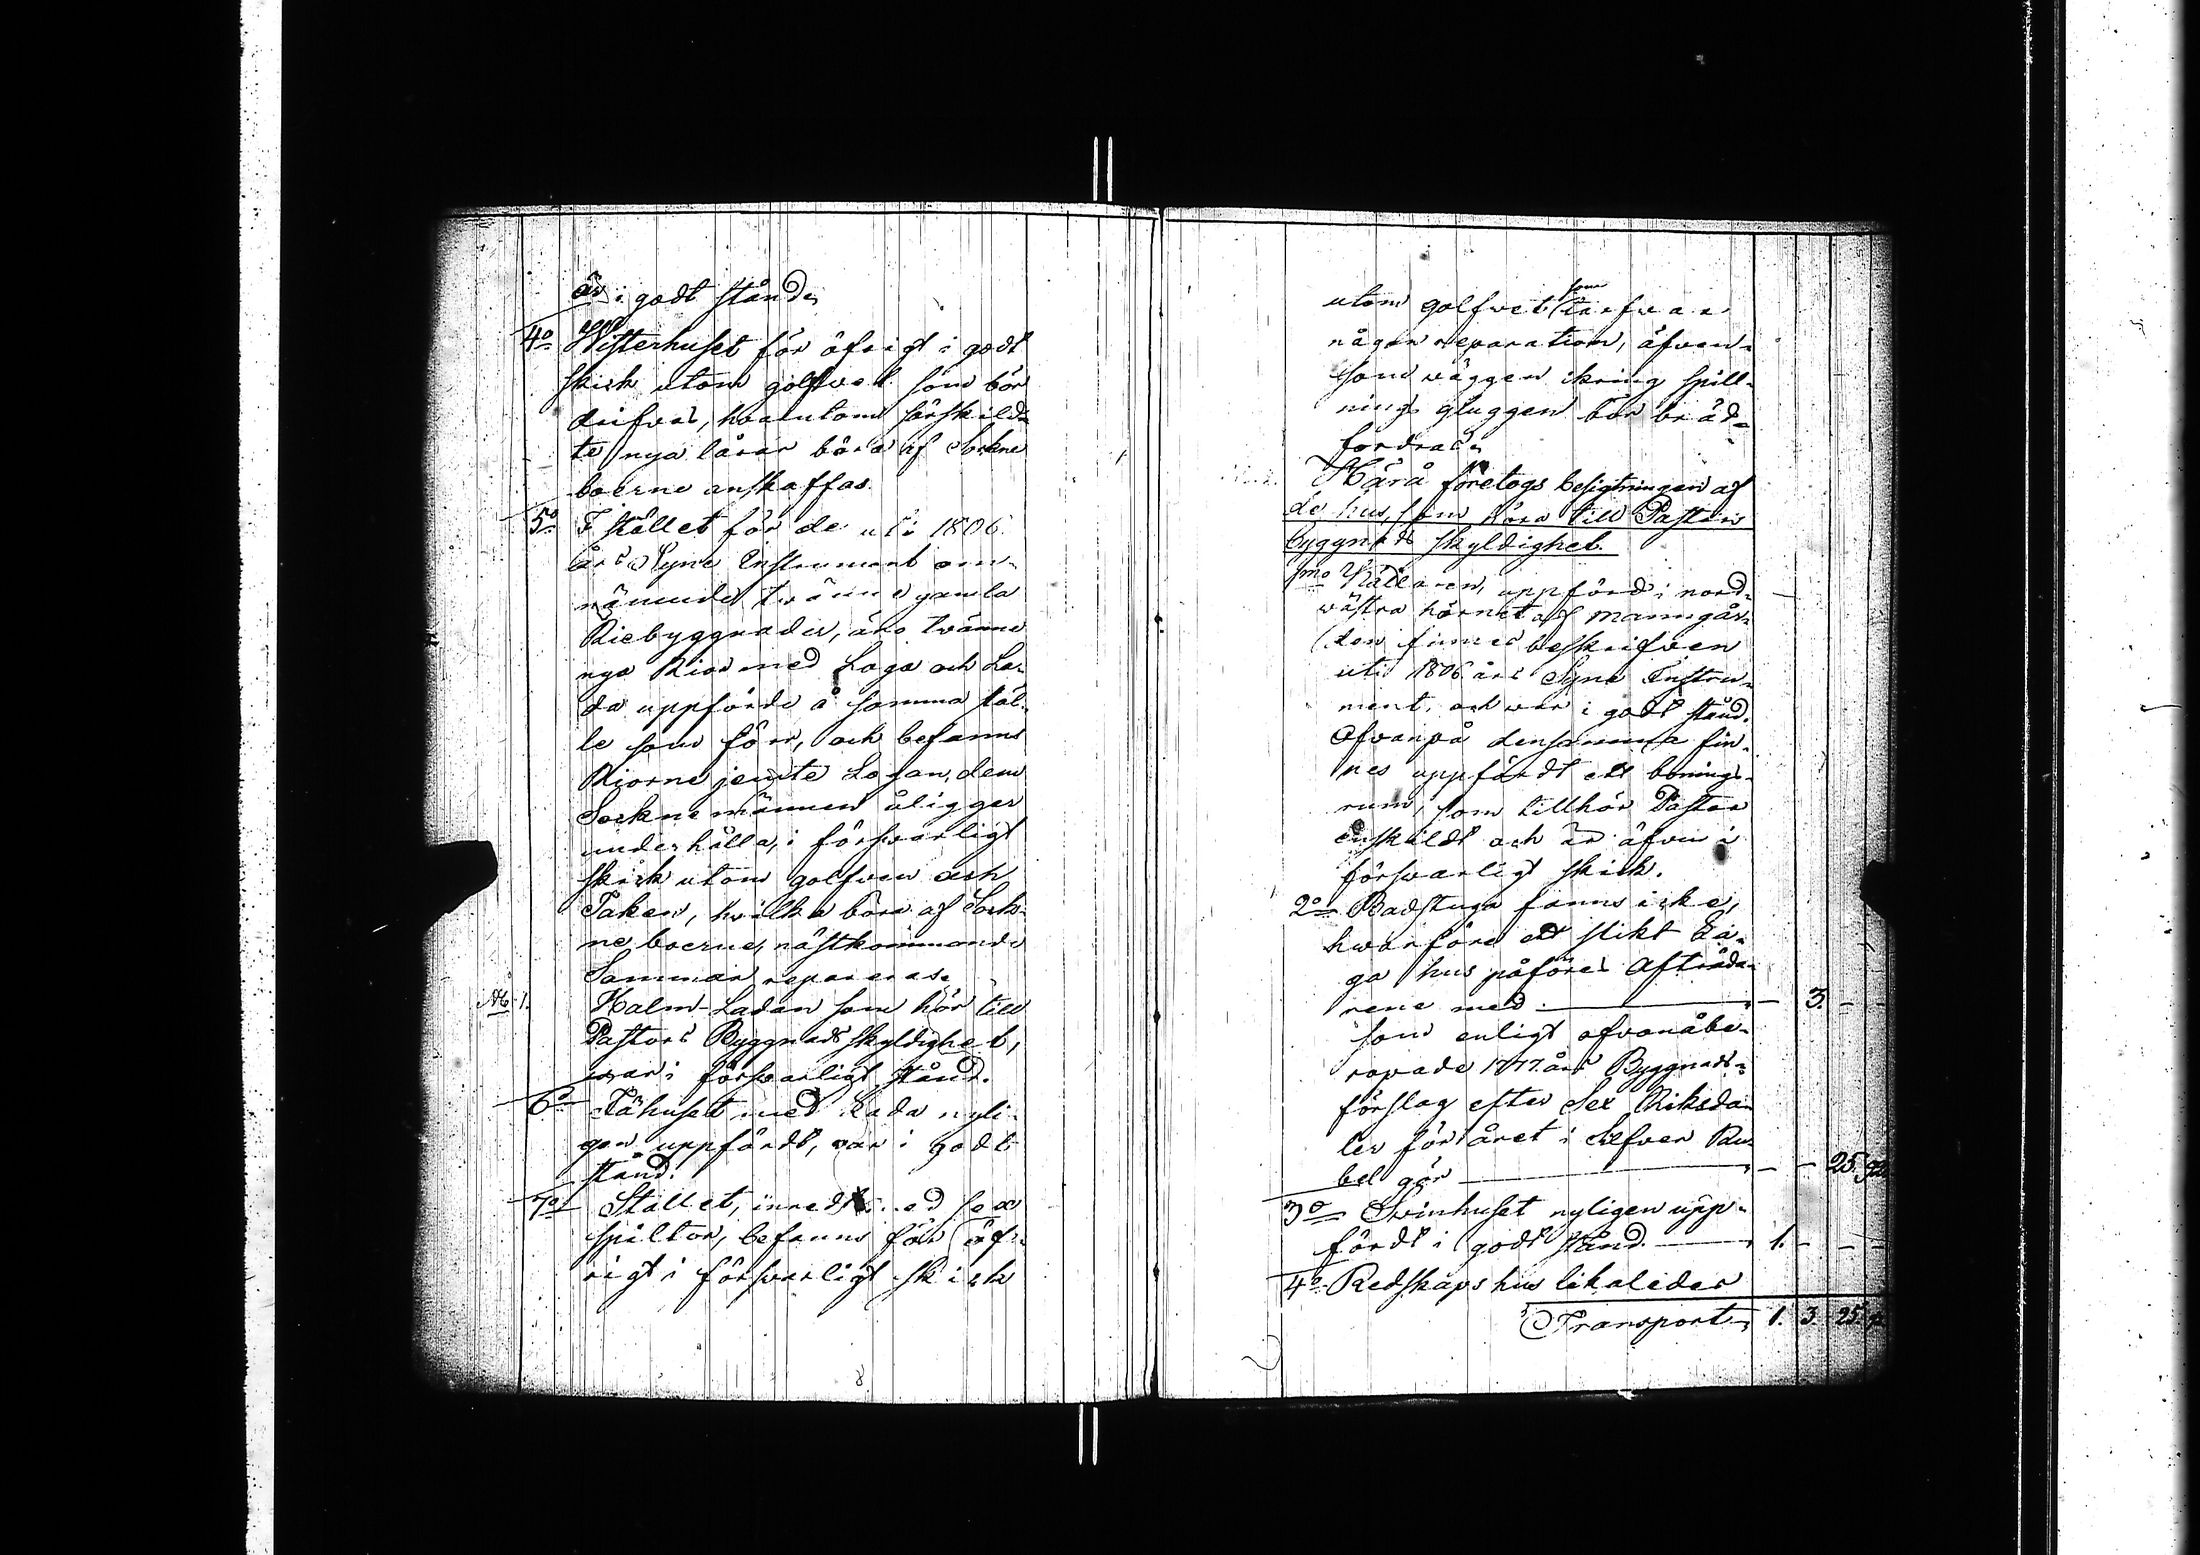 är i godt stånd.
4o Wisterhuset för öfrigt i godt
skick utom golfvet som bör
drifvas, hvarutom särskild-
te nya lårar böra af Sockne
boerne anskaffas.
5o I stället för de uti 1806
års Syne Instrument om-
nämnde tvänne gamla
Riebyggnader, äro tvänne
nya Rior med Loga och La-
da uppförde å samma stäl-
le som förr, och befanns
Riorne jemte Logan, dem
Socknemännen åligger
underhålla, i försvarligt
skick utom golfven och
Taken, hvilka böra af Sock-
ne boerne, nästkommande
Sommar repareras.
No 1. Halm-Ladan som hör till
Pastors Byggnads skyldighet,
var i försvarligt stånd.
6o Fähuset med Lada nyli-
gen uppfördt, var i godt
stånd.
7o Stallet, inredt med sex
spiltor, befanns för öf-
rigt i försvarligt skick
8
utom golfvet som tarfvar
någon reparation, äfven-
som väggen ikring spill-
nings gluggen bör bräd-
fordras.
Härå företogs besigtningen af
de hus, som höra till Pastors
byggnads skyldighet.
1mo Källaren, uppförd i nord-
västra hörnet af manngår-
den finnes beskrifven
uti 1806 års Syne Instru-
ment, och var i godt stånd.
Ofvanpå densamma fin-
nes uppfördt ett bonings-
rum, som tillhör Pastor
enskildt och är äfven i
försvarligt skick.
2o Badstuga fanns icke,
hvarföre ett slikt La-
ga hus påföres Afträda-
rene med — — 3. — —
som enligt ofvanåbe-
ropade 1777 års Byggnads-
förslag efter Sex Riksda-
ler för året i Silfver Ru-
bel gör — — — 25. 92
3o Svinhuset nyligen upp-
fördt i godt stånd. — 1. — — —
4o Redskaps hus likaledes
Transport 1. 3. 25.